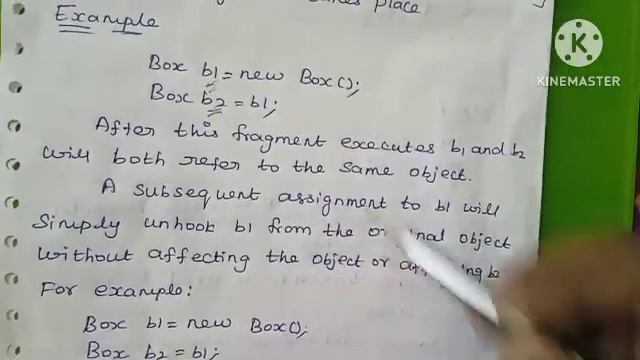 takes place
Example
Box b1 = new Box();
Box b2 = b1;
After this fragment executes b1 and b2
will both refer to the same object.
A subsequent assignment to b1 will
Simply unhook b1 from the object
without affecting the object or b2
For example:
Box b1 = new Box();
Box b2 = b1;
K
KINEMASTER